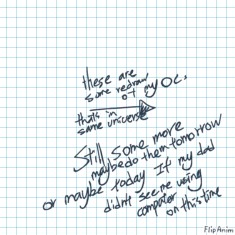 these are
some redraw
of my OC.
thats in
same universe
Still some more
maybe do them tomorrow
or maybe today If my dad
didnt see me using
computer
on this time
FlipAnim